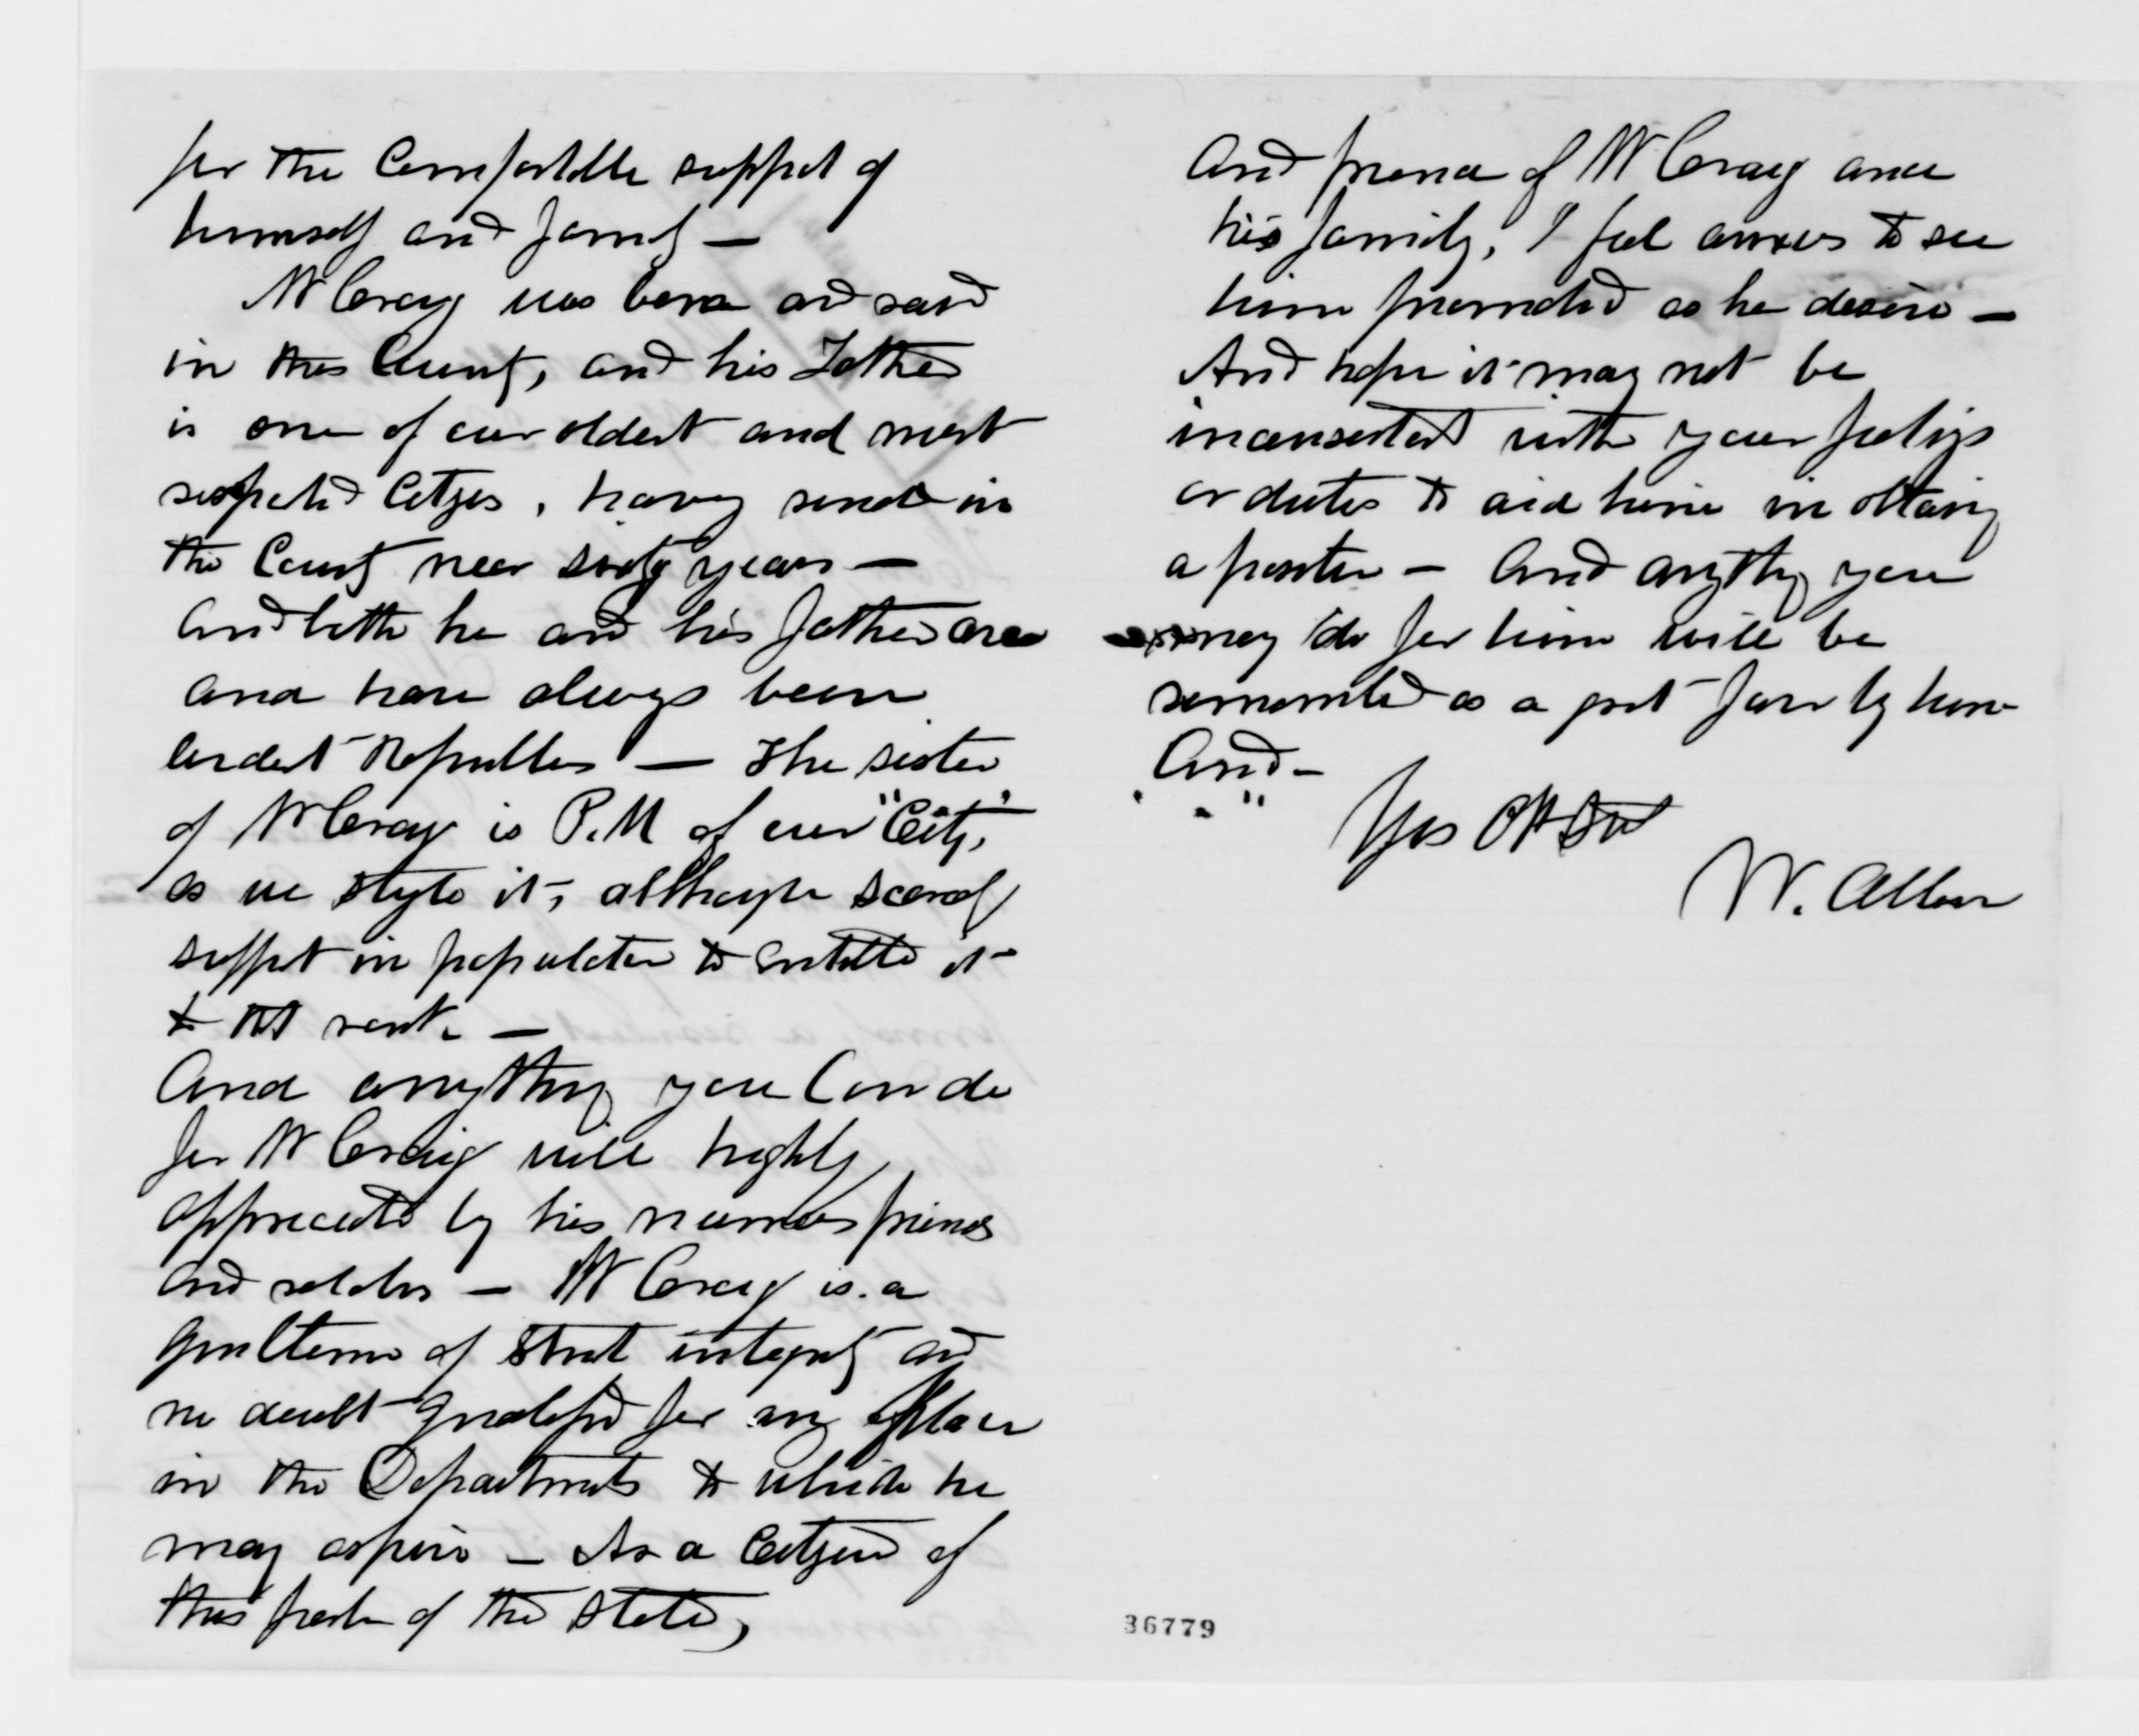 for the Comfortable support of
himself and family —
Mr Craig was born and raised
in this County, and his Father
is one of our oldest and most
respected Citizens, having resided in
the County near sixty years —
and both he and his father are
and have always been
ardent Republicans — The sister
of Mr Craig is P.M of our "City,"
as we style it, although scarcely
sufficient in population to entitle it
to that rank —
And anything you Can do
for Mr Craig will highly
appreciated by his numerous friends
and relatives — Mr Craig is a
gentleman of strict integrity and
no doubt qualified for any place
in the Departments to which he
may aspire — As a Citizen of
this portion of the State,
and friend of Mr Craig and
his family, I feel anxious to see
him promoted as he desires —
And hope it may not be
inconsistent with your feelings
or duties to aid him in obtaining
a position — And anything you
may do for him will be
remembered as a great favor by him
And —
" "
Yrs Obt Svt
W. Allen
36779